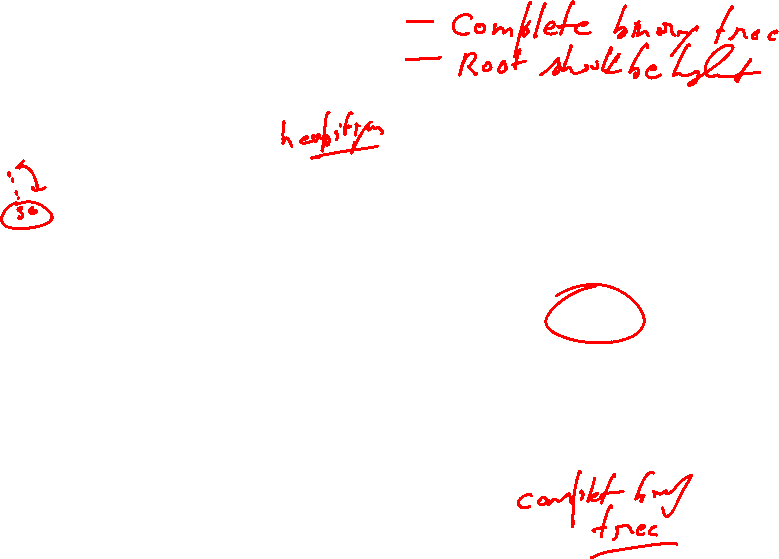 — Complete binary tree
— Root should be
heapify
30
complet binary
tree